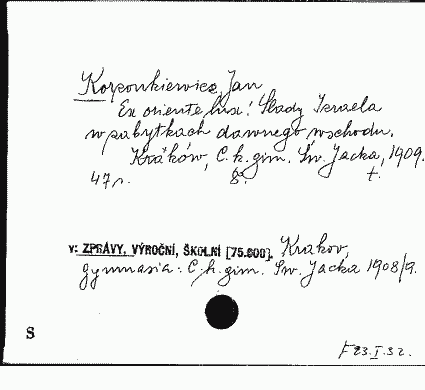 Korzonkiewicz, Jan
Ex oriente lux! Ślady Izraela
w zabytkach dawnego wschodu.
Kraków, C. k. gim. Św. Jacka, 1909.
47 s. 8°. t.
v: ZPRÁVY, VÝROČNÍ, ŠKOLNÍ [75.600]. Krakov,
gymnasia: C. k. gim. Św. Jacka 1908/9.
S
F 23.I.32.